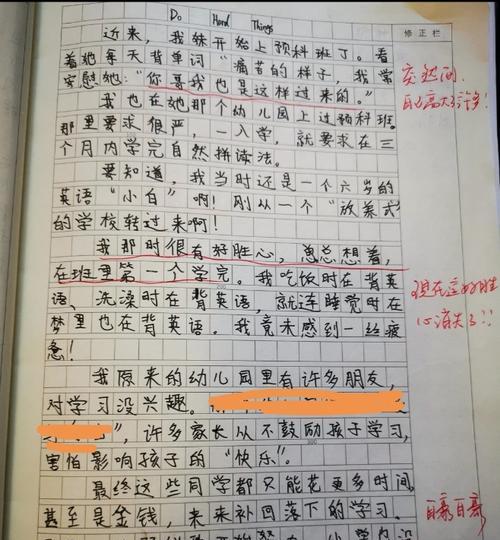 Do Hard Things
修正栏
近来，我妹开始上预科班了。看
着她每天背单词“痛苦的样子，我常
安慰她：“你哥我也是这样过来的。”
我也在她那个幼儿园上过预科班。
那里要求很严，一入学，就要求在三
个月内学完自然拼读法。
要知道，我当时还是一个六岁的
英语“小白”啊！刚从一个“放养式”
的学校转过来啊！
我那时很有好胜心，总总想着，
在班里第一个学完。我吃饭时在背英
语、洗澡时在背英语，就连睡觉时在
梦里也在背英语。我竟未感到一丝疲
惫！
我原来的幼儿园里有许多朋友，
对学习没兴趣。
”，许多家长从不鼓励孩子学习，
害怕影响孩子的“快乐”。
最终这些同学都只能花更多时间，
甚至是金钱，来来补回落下的学习。
突然间，
自己高大了许多！
现在这好胜
心消失了！！
自豪自豪